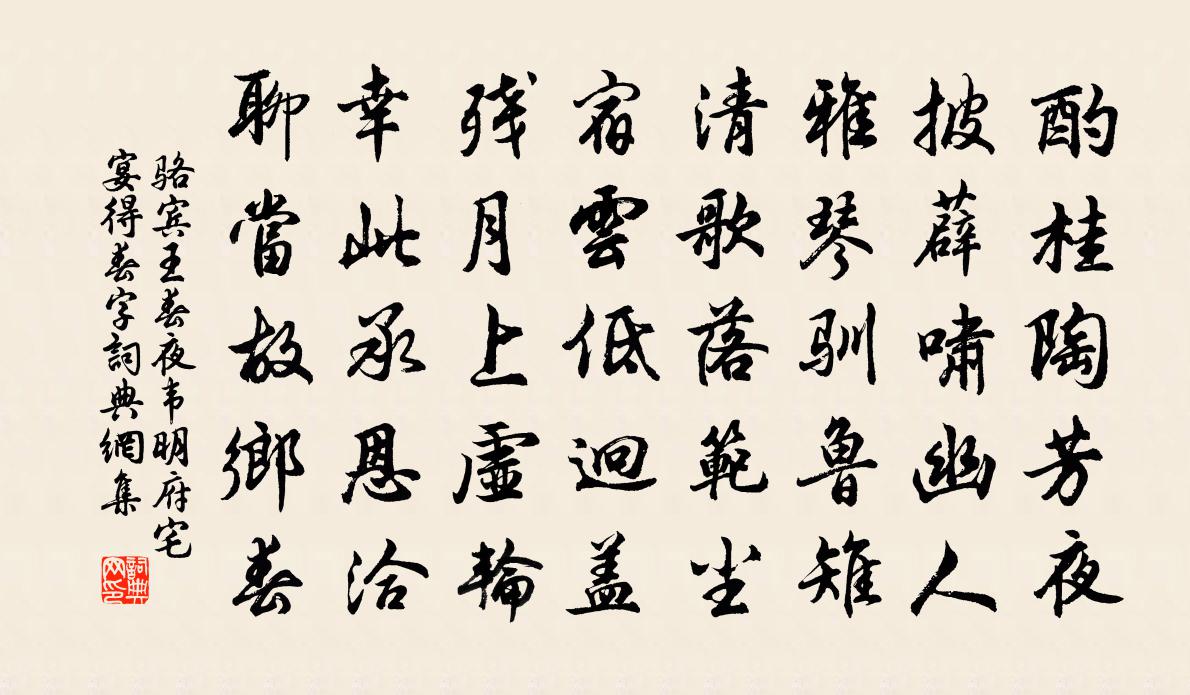 酌桂陶芳夜
披薜嘯幽人
雅琴驯鲁雉
清歌落範尘
宿雲低迥盖
残月上虛輪
幸此承恩洽
聊當故鄉春
骆宾王春夜韦明府宅
宴得春字詞典網集
詞典
网印